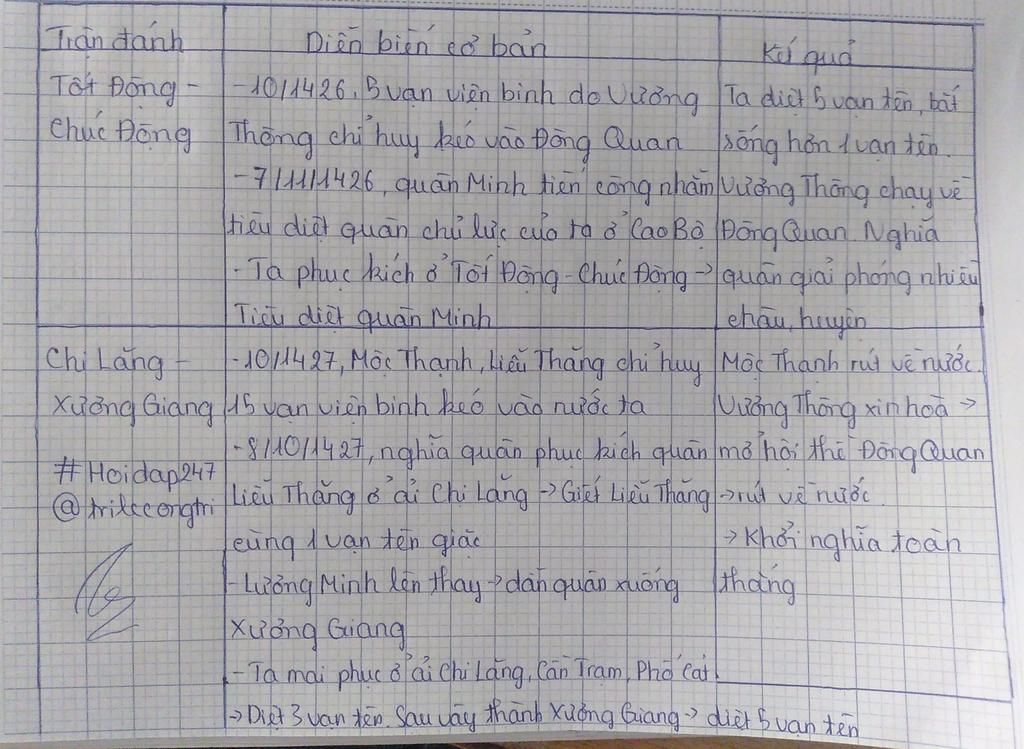 Trận đánh
Diễn biến cơ bản
Kết quả
Tốt Động -
Chúc Động
- 10/1426, 5 vạn viện binh do Vương
Thông chỉ huy kéo vào Đông Quan
- 7/11/1426, quân Minh tiến công nhằm
tiêu diệt quân chủ lực của ta ở Cao Bộ
- Ta phục kích ở Tốt Động - Chúc Động →
Tiêu diệt quân Minh
Ta diệt 5 vạn tên, bắt
sống hơn 1 vạn tên.
Vương Thông chạy về
Đông Quan. Nghĩa
quân giải phóng nhiều
châu, huyện
Chi Lăng -
Xương Giang
#Hoidap247
@trilecongtri
- 10/1427, Mộc Thạnh, Liễu Thăng chỉ huy
15 vạn viện binh kéo vào nước ta
- 8/10/1427, nghĩa quân phục kích quân
Liễu Thăng ở ải Chi Lăng → Giết Liễu Thăng
cùng 1 vạn tên giặc
- Lương Minh lên thay → dẫn quân xuống
Xương Giang
- Ta mai phục ở ải Chi Lăng, Cần Trạm, Phố Cát
→ Diệt 3 vạn tên. Sau vây thành Xương Giang → diệt 5 vạn tên
Mộc Thạnh rút về nước.
Vương Thông xin hoà →
mở hội thề Đông Quan
→ rút về nước.
→ Khởi nghĩa toàn
thắng